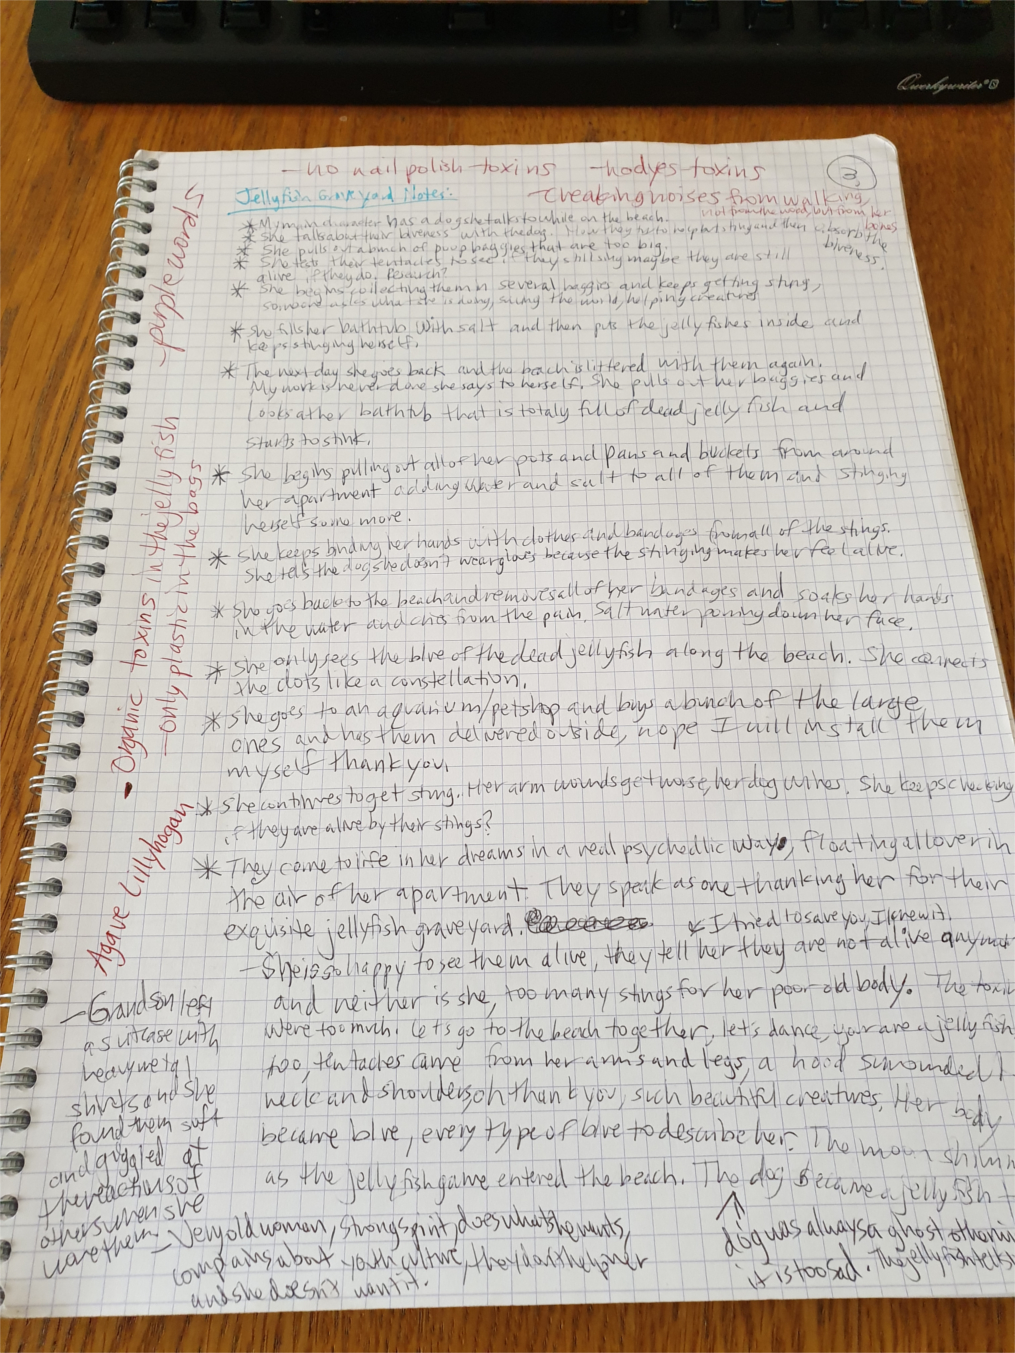 Qwerkywriter®
- no nail polish toxins - no dyes-toxins
3
Jellyfish Graveyard Notes:
creaking noises from walking,
not from the wood, but from her
bones
* My main character has a dog she talks to while on the beach.
* She talks about their blueness with the dog. How they turn to
and then absorb the
blueness.
* She pulls out a bunch of poop baggies that are too big.
* She tests their tentacles to see if they still sting maybe they are still
alive if they do. Research?
* She begins collecting them in several baggies and keeps getting stung,
someone asks what she is doing, saving the world, helping creatures
* She fills her bathtub with salt and then puts the jellyfishes inside and
keeps stinging herself.
* The next day she goes back and the beach is littered with them again.
My work is never done she says to herself. She pulls out her baggies and
looks at her bathtub that is totaly full of dead jelly fish and
starts to stink.
* She begins pulling out all of her pots and pans and buckets from around
her apartment adding water and salt to all of them and stinging
herself some more.
* She keeps binding her hands with clothes and bandages from all of the stings.
She tells the dog she doesn't wear gloves because the stinging makes her feel alive.
* She goes back to the beach and removes all of her bandages and soaks her hands
in the water and cries from the pain. Salt water pouring down her face.
* She only sees the blue of the dead jellyfish along the beach. She connects
the dots like a constellation.
* She goes to an aquarium/petshop and buys a bunch of the large
ones and has them delivered outside, nope I will install them
myself thank you.
* She continues to get stung. Her arm wounds get worse, her dog whines. She keeps checking
if they are alive by their stings?
* They come to life in her dreams in a real psychedlic way, floating all over in
the air of her apartment. They speak as one thanking her for their
exquisite jellyfish graveyard.
I tried to save you, I knew it.
- She is so happy to see them alive, they tell her they are not alive
and neither is she, too many stings for her poor old body. The
were too much. Let's go to the beach together, let's dance, you are a jellyfish
too, tentacles came from her arms and legs, a hood surounded
neck and shoulders, oh thank you, such beautiful creatures. Her body
became blue, every type of blue to describe her. The moon
as the jellyfish game entered the beach. The dog became a jellyfish
dog was always a ghost
it is too sad. The jellyfish
- purple words
• Organic toxins in the jelly fish
- only plastic in the bags
Agave Lillyhogan
- Grandson left
a suitcase with
heavy metal
shirts and she
found them soft
and giggled at
the reactions of
others when she
wore them
- Very old woman, strong spirit, does what she wants,
complains about youth culture, they don't help her
and she doesn't want it.